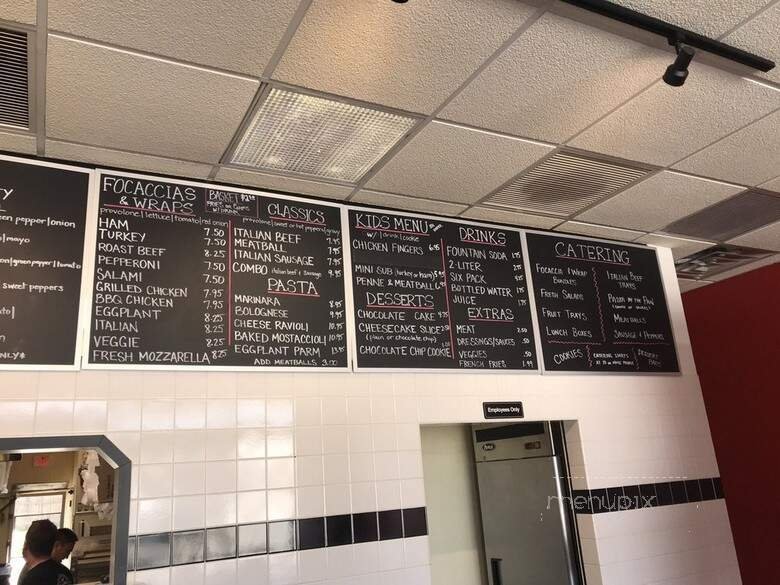 TY
een pepper|onion
/mayo
t
sweet peppers
ONLY*
FOCACCIAS
& WRAPS
BASKET
provolone|lettuce|tomato|red onion
HAM 7.50
TURKEY 7.50
ROAST BEEF 8.25
PEPPERONI 7.50
SALAMI 7.50
GRILLED CHICKEN 7.95
BBQ CHICKEN 7.95
EGGPLANT 8.25
ITALIAN 8.25
VEGGIE 8.25
FRESH MOZZARELLA 8.25
CLASSICS
provolone|sweet or hot peppers|gravy
ITALIAN BEEF 7.95
MEATBALL 7.95
ITALIAN SAUSAGE 7.95
COMBO italian beef & sausage 9.95
PASTA
MARINARA 8.95
BOLOGNESE 9.95
CHEESE RAVIOLI 10.95
BAKED MOSTACCIOLI 10.95
EGGPLANT PARM 13.95
ADD MEATBALLS 3.00
KIDS MENU
w/ drink|cookie
CHICKEN FINGERS 6.95
MINI SUB (turkey or ham)
PENNE & MEATBALL
DESSERTS
CHOCOLATE CAKE
CHEESECAKE SLICE
(plain or chocolate chip)
CHOCOLATE CHIP COOKIE
DRINKS
FOUNTAIN SODA
2-LITER
SIX PACK
BOTTLED WATER
JUICE
EXTRAS
MEAT 2.50
DRESSINGS/SAUCES .50
VEGGIES .50
FRENCH FRIES 1.99
CATERING
FOCACCIA & WRAP
BUNDLES
FRESH SALADS
FRUIT TRAYS
LUNCH BOXES
ITALIAN BEEF
TRAYS
PASTA IN THE PAN
MEATBALLS
SAUSAGE & PEPPERS
COOKIES
DESSERT
Employees Only
menupix